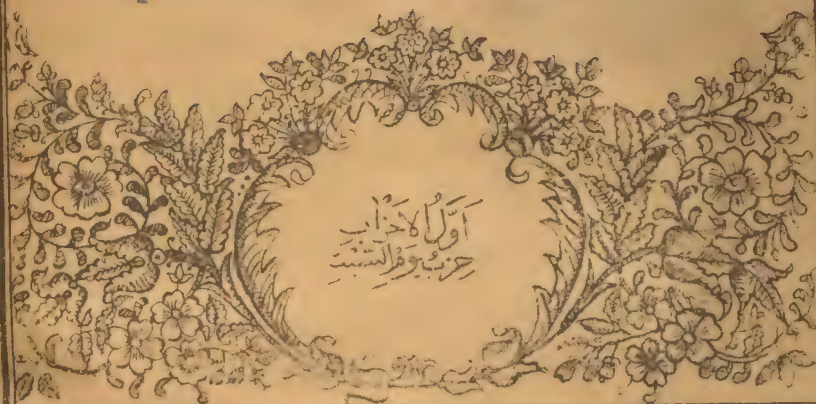 اَوَّلُ الاَحْزَابِ
حِزْبُ يَوْمِ السَّبْتِ